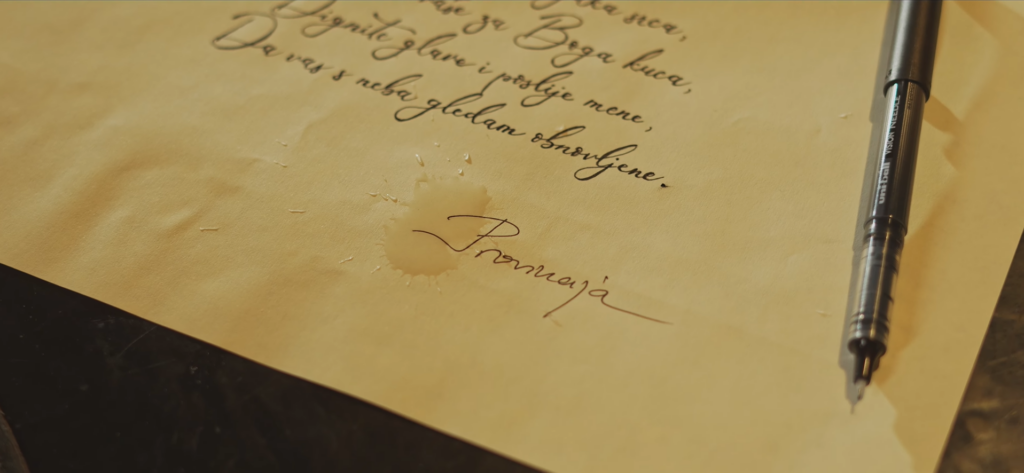 srca,
za Boga kuca,
Dignite glave i poslije mene,
Da vas s neba gledam obnovljene.
uni-ball VISION NEEDLE